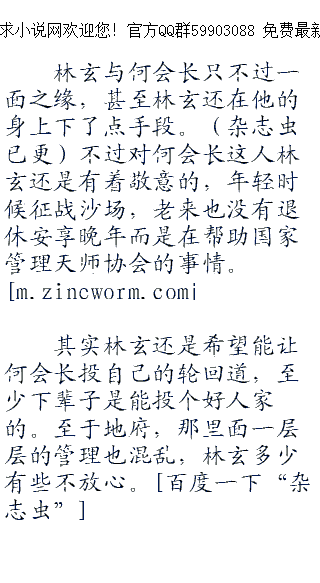 求小说网欢迎您! 官方QQ群59903088 免费最新
林玄与何会长只不过一
面之缘，甚至林玄还在他的
身上下了点手段。（杂志虫
已更）不过对何会长这人林
玄还是有着敬意的，年轻时
候征战沙场，老来也没有退
休安享晚年而是在帮助国家
管理天师协会的事情。
[m.zincworm.com]
其实林玄还是希望能让
何会长投自己的轮回道，至
少下辈子是能投个好人家
的。至于地府，那里面一层
层的管理也混乱，林玄多少
有些不放心。[百度一下“杂
志虫”]